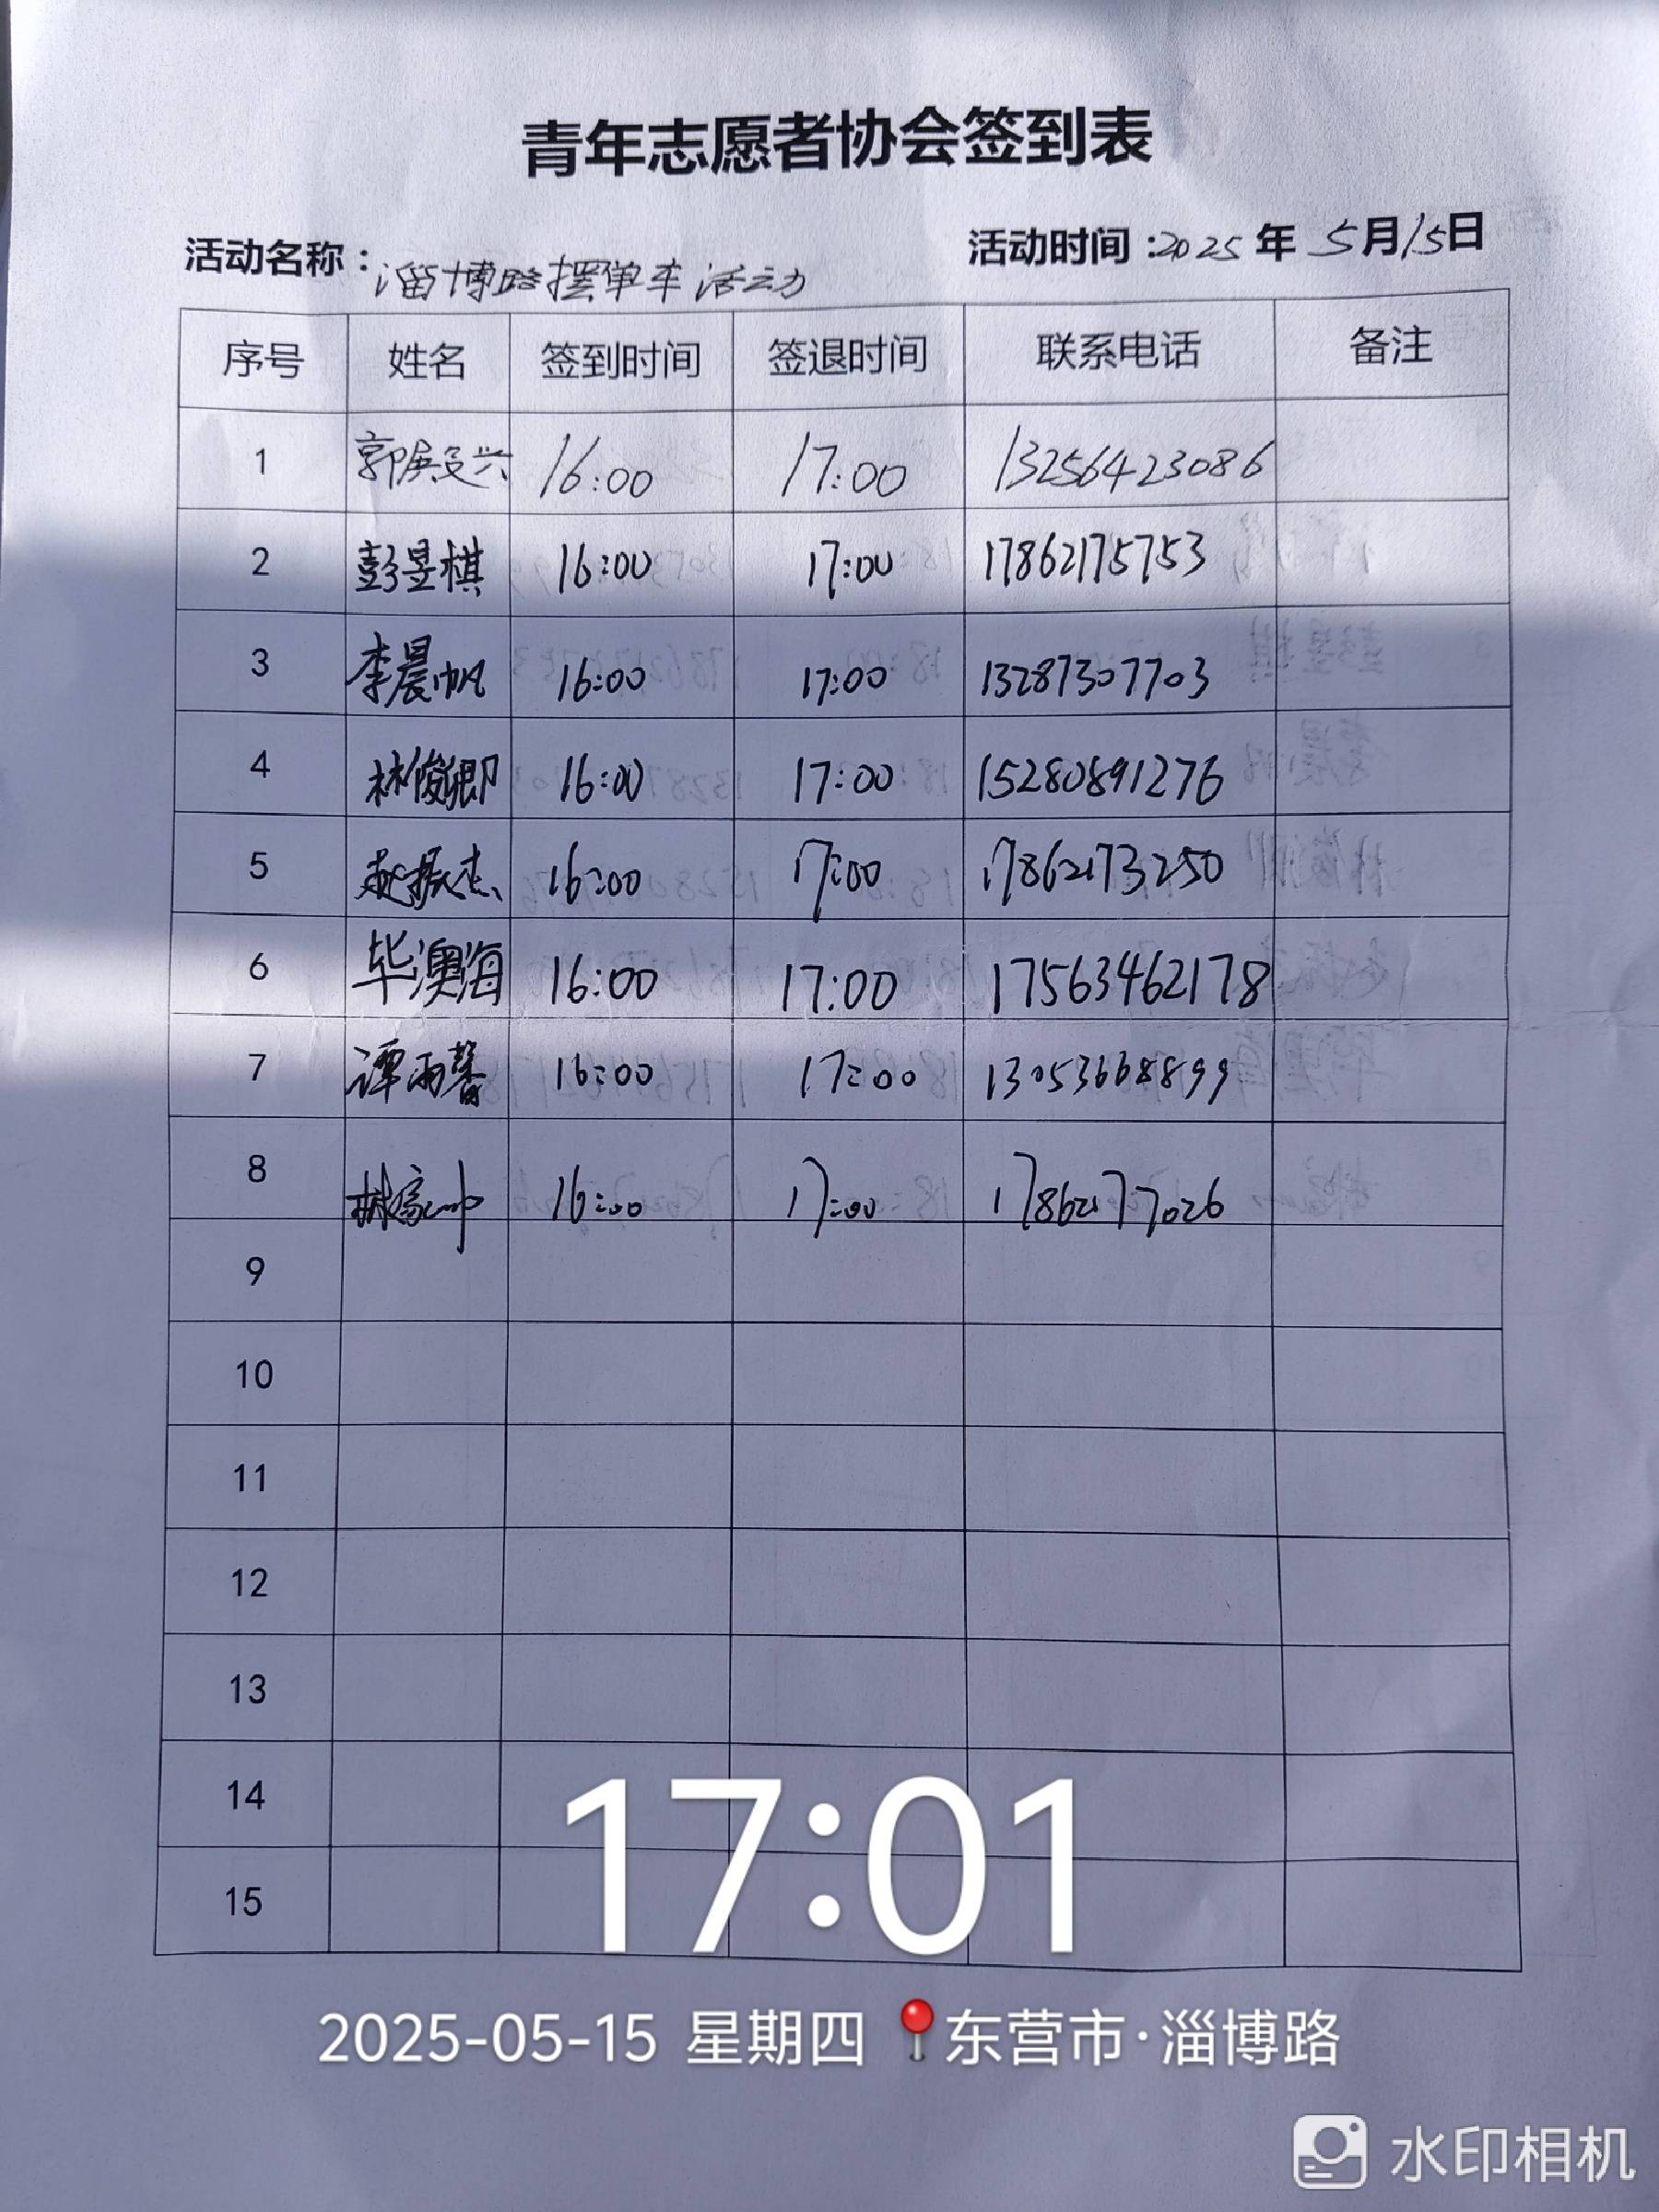 青年志愿者协会签到表
活动名称：淄博路摆单车活动 活动时间：2025年5月15日
序号 姓名 签到时间 签退时间 联系电话 备注
1 16:00 17:00 13256423086
2 彭昱棋 16:00 17:00 17862175753
3 李晨帆 16:00 17:00 13287307703
4 林俊卿 16:00 17:00 15280891276
5 赵振杰 16:00 17:00 17862173250
6 毕澳海 16:00 17:00 17563462178
7 谭雨馨 16:00 17:00 13053668899
8 16:00 17:00 17862177026
9
10
11
12
13
14
15
17:01
2025-05-15 星期四 东营市·淄博路
水印相机